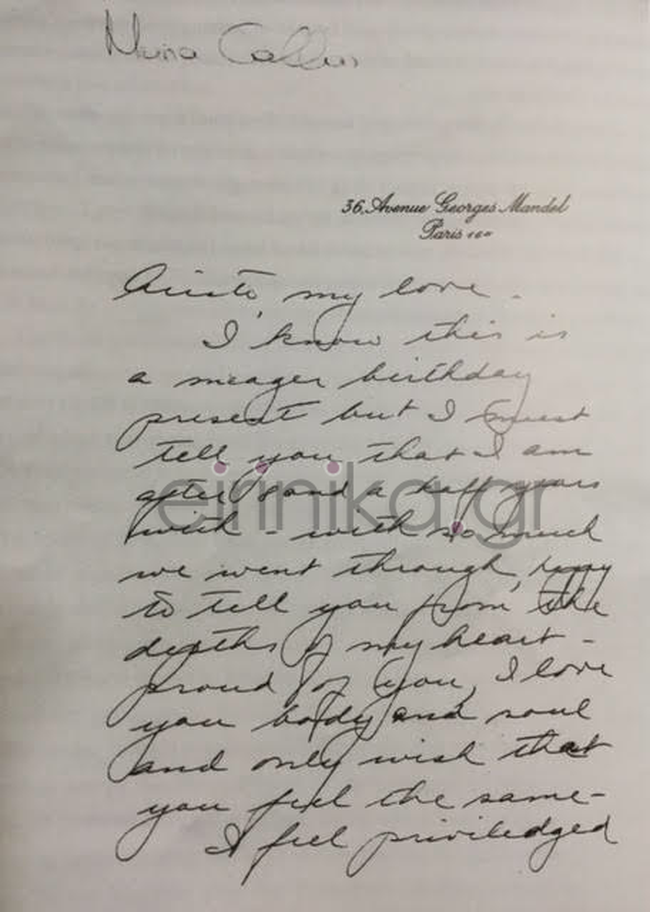 Maria Callas
36, Avenue Georges Mandel
Paris 16e
Aristo, my love -
I know this is
a meager birthday
present but I must
tell you that I am
after 8 and a half years
with - with so much
we went through, happy
to tell you from the
depths of my heart -
proud of you, I love
you body and soul
and only wish that
you feel the same -
I feel priviledged
eirinika.gr